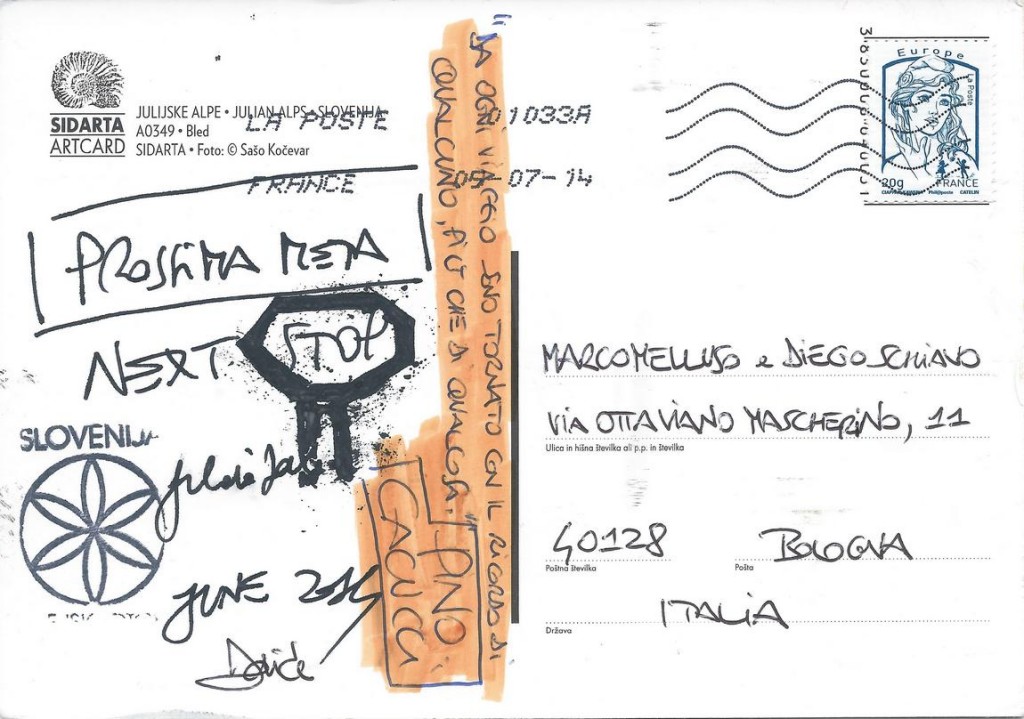 SIDARTA
ARTCARD
JULIJSKE ALPE • JULIAN ALPS • SLOVENIJA
A0349 • Bled
SIDARTA • Foto: © Sašo Kočevar
LA POSTE
01033A
FRANCE
05-07-14
Europe
La Poste
20g
FRANCE
PROSSIMA META
NEXT
STOP
SLOVENIJA
JUNE 2014
Davide
"DA OGNI VIAGGIO SONO TORNATO CON IL RICORDO DI
QUALCUNO, PIÙ CHE DI QUALCOSA."
PINO
CACUCCI
MARCO MELLUSO e DIEGO SCHIAVO
VIA OTTAVIANO MASCHERINO, 11
Ulica in hišna številka ali p.p. in številka
40128 BOLOGNA
Poštna številka Pošta
ITALIA
Država